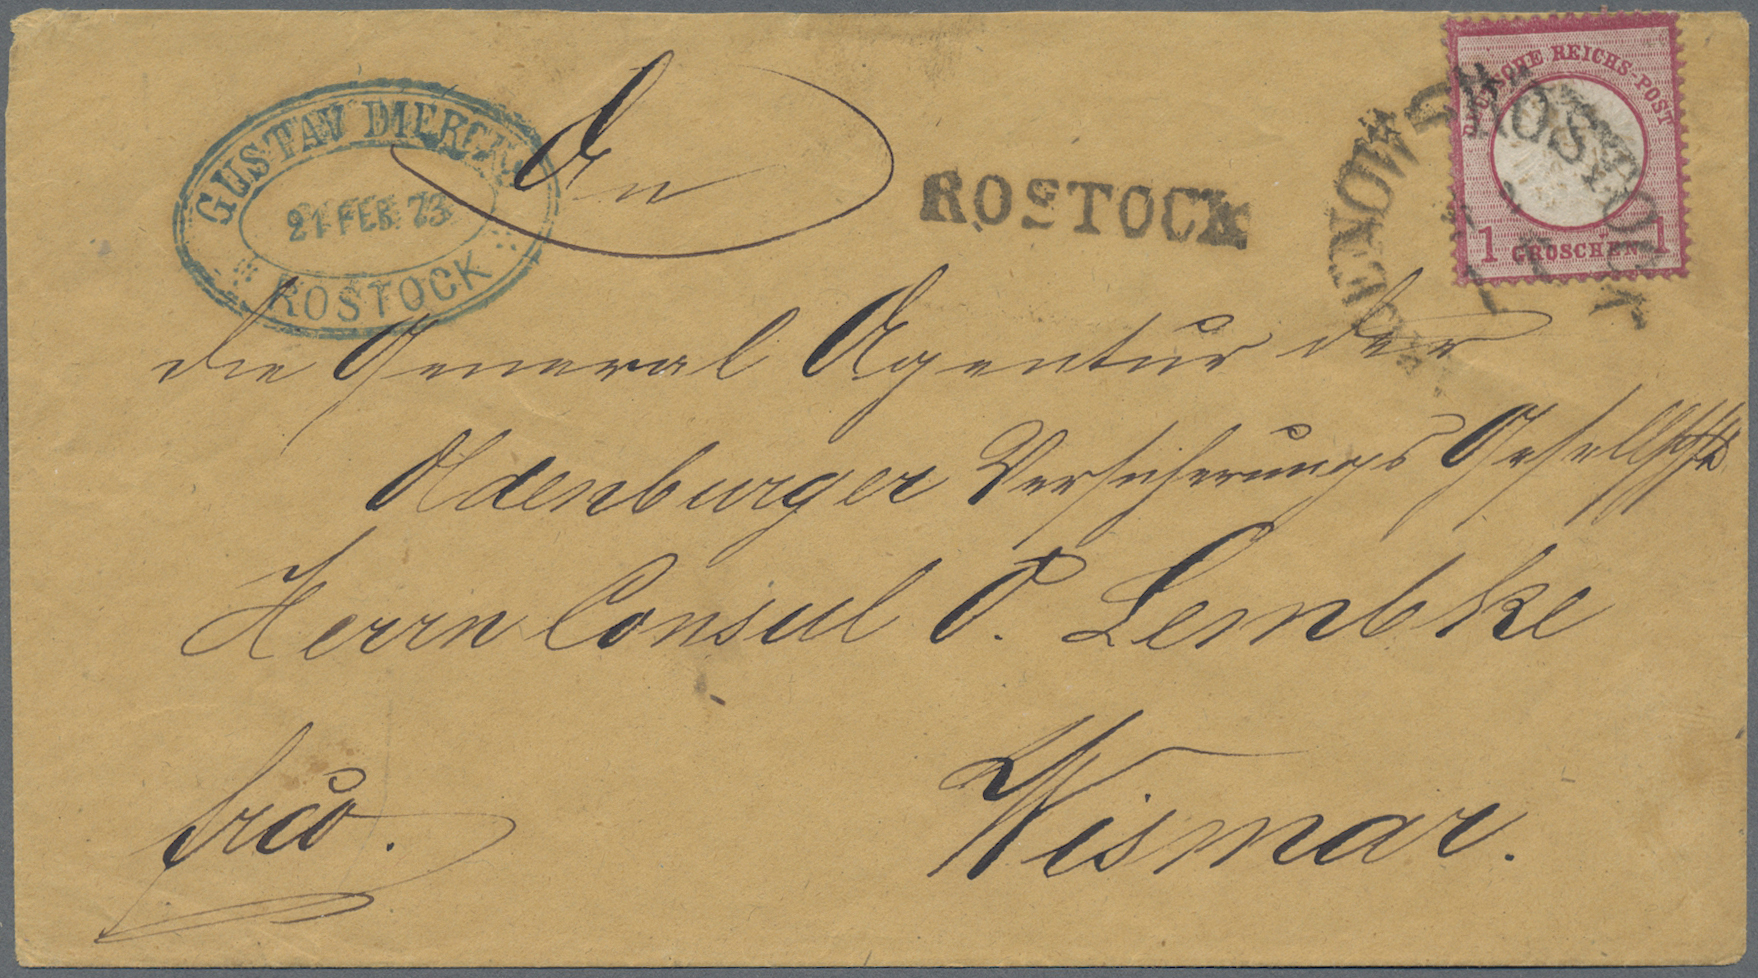 GUSTAV DIERCKS
21 FEB. 73
ROSTOCK
An
ROSTOCK
DEUTSCHE REICHS-POST
1 GROSCHEN 1
ROSTOCK
die General Agentur der
Oldenburger Versicherungs Gesellschft
Herrn Consul P. Lembke
frco.
Wismar.